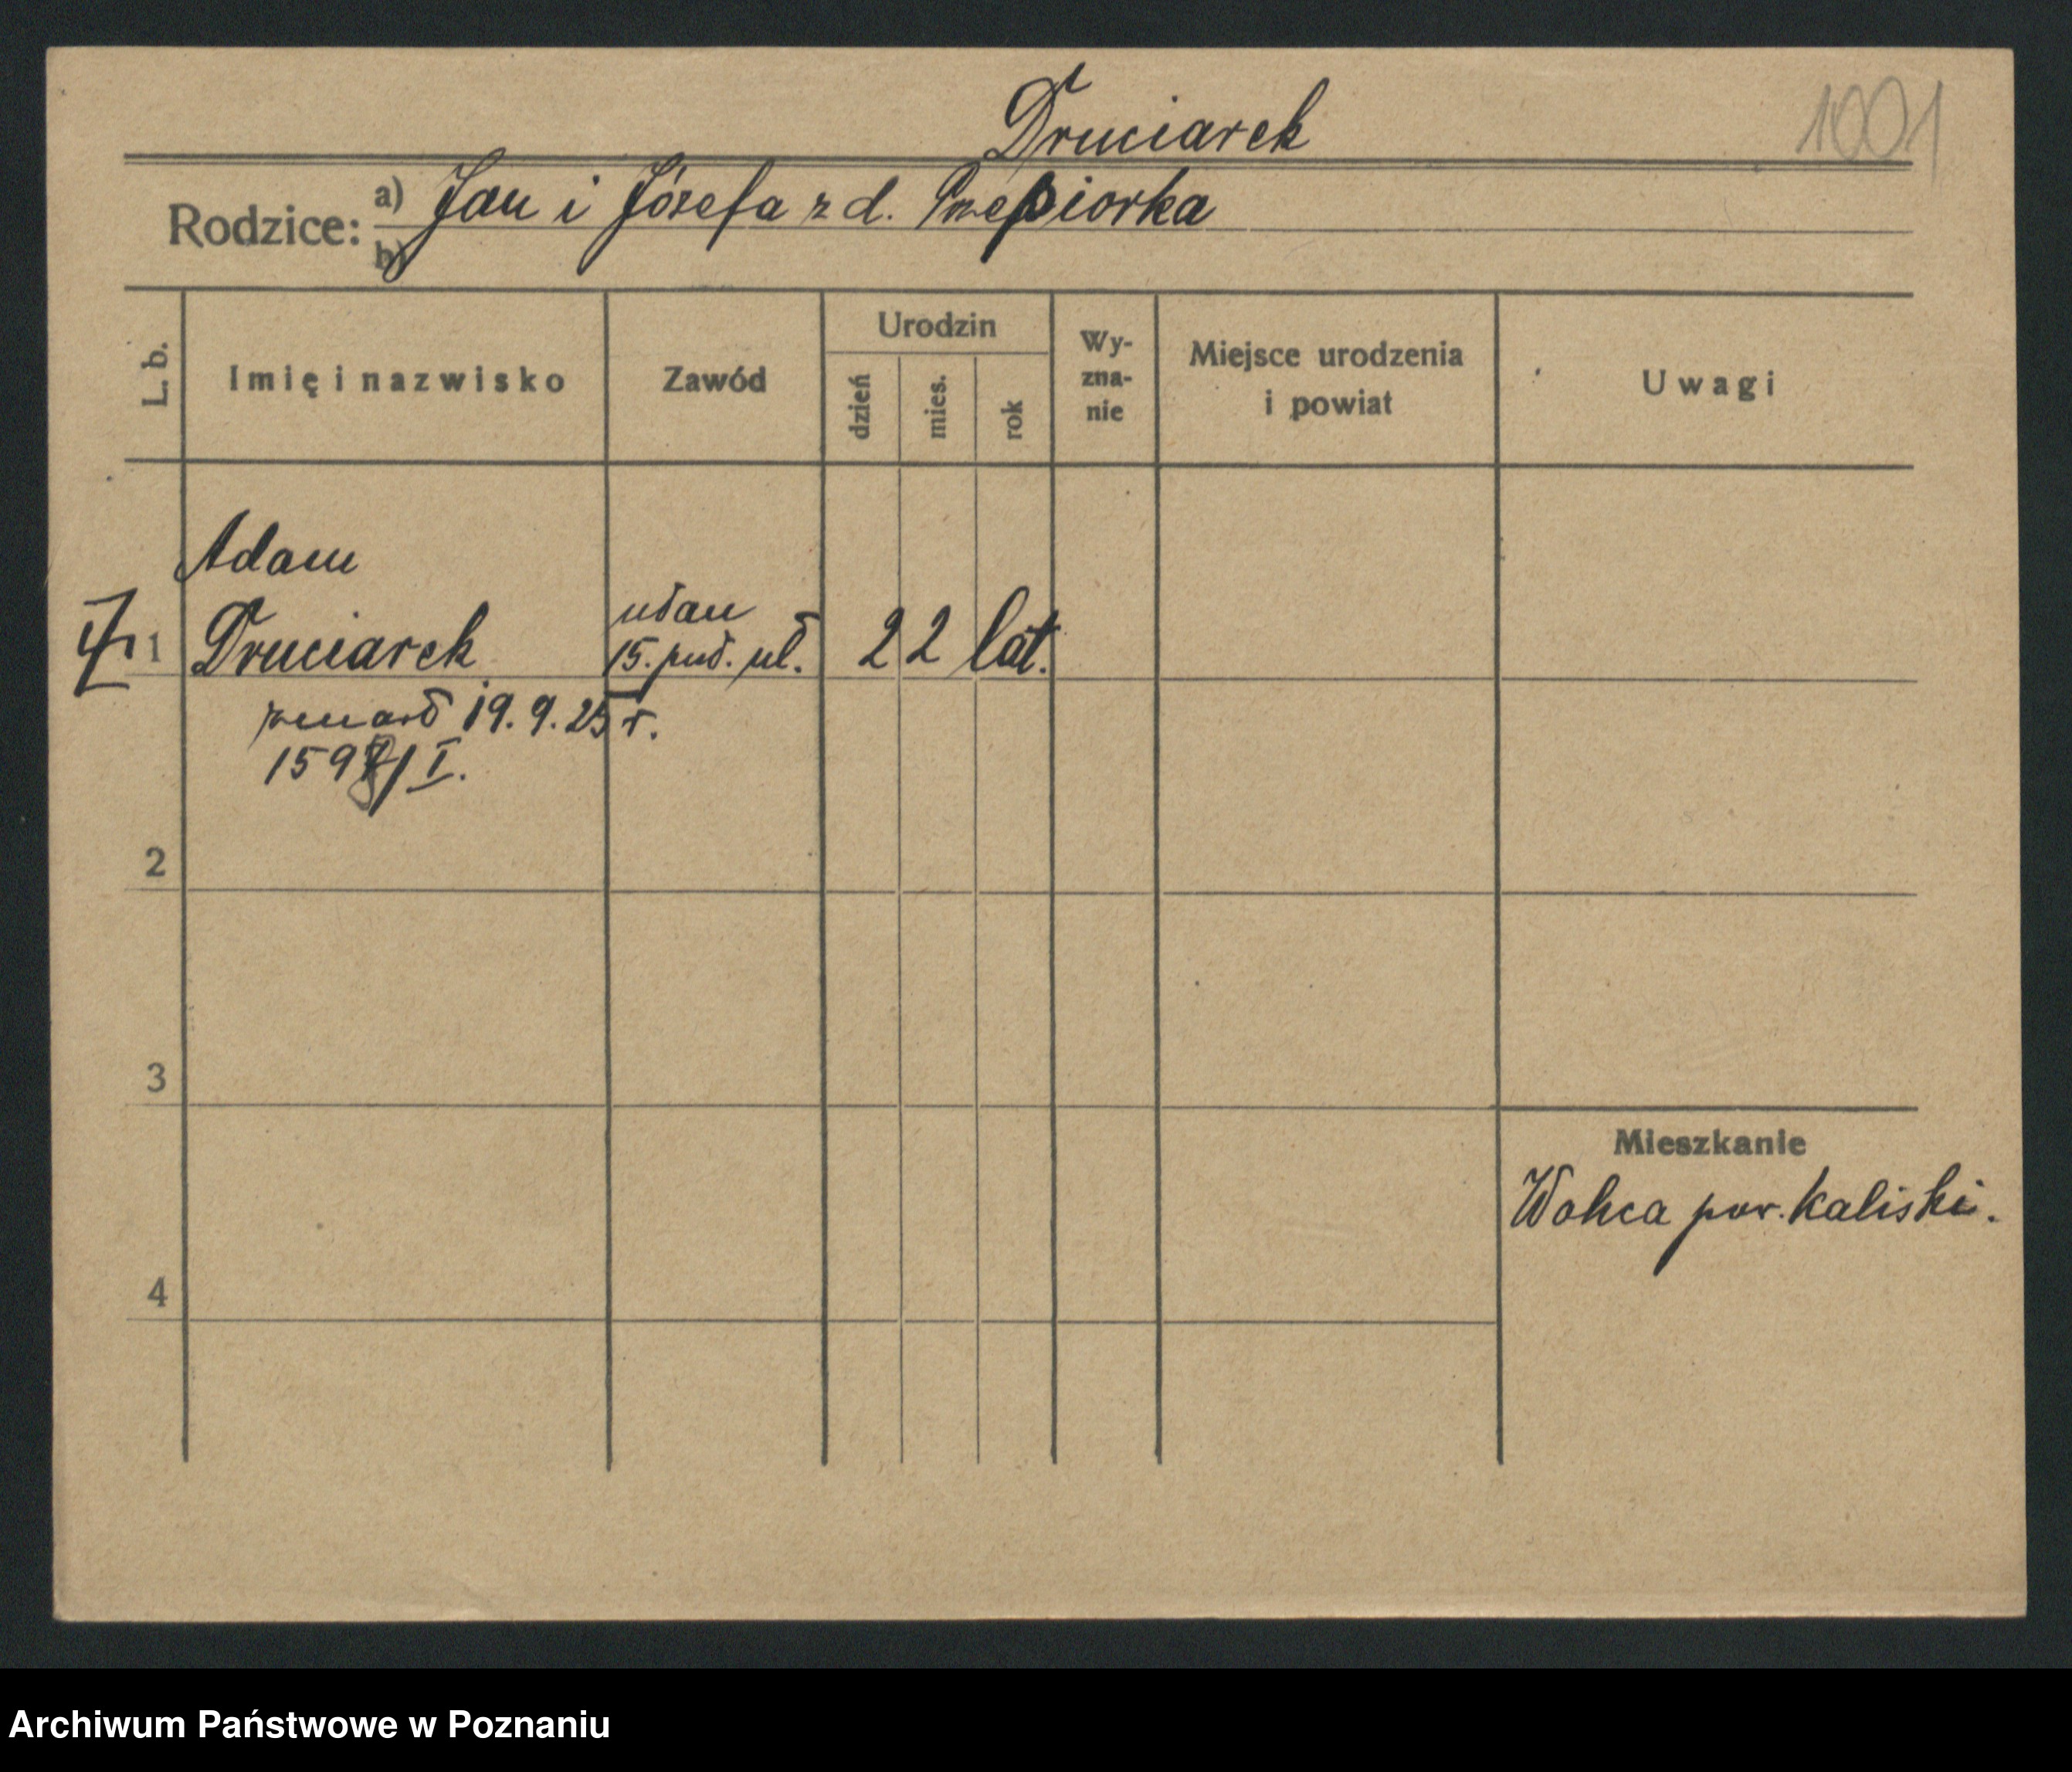 Druciarek
1001
Rodzice: a) Jan i Józefa z d. Przepiorka
b)
L. b.
Imię i nazwisko
Zawód
Urodzin
dzień
mies.
rok
Wy-
zna-
nie
Miejsce urodzenia
i powiat
Uwagi
Adam
1 Druciarek
ułan
15. puł. uł.
22 lat.
zmarł 19. 9. 25 r.
1598/I.
2
3
4
Mieszkanie
Wolica pow. Kaliski.
Archiwum Państwowe w Poznaniu